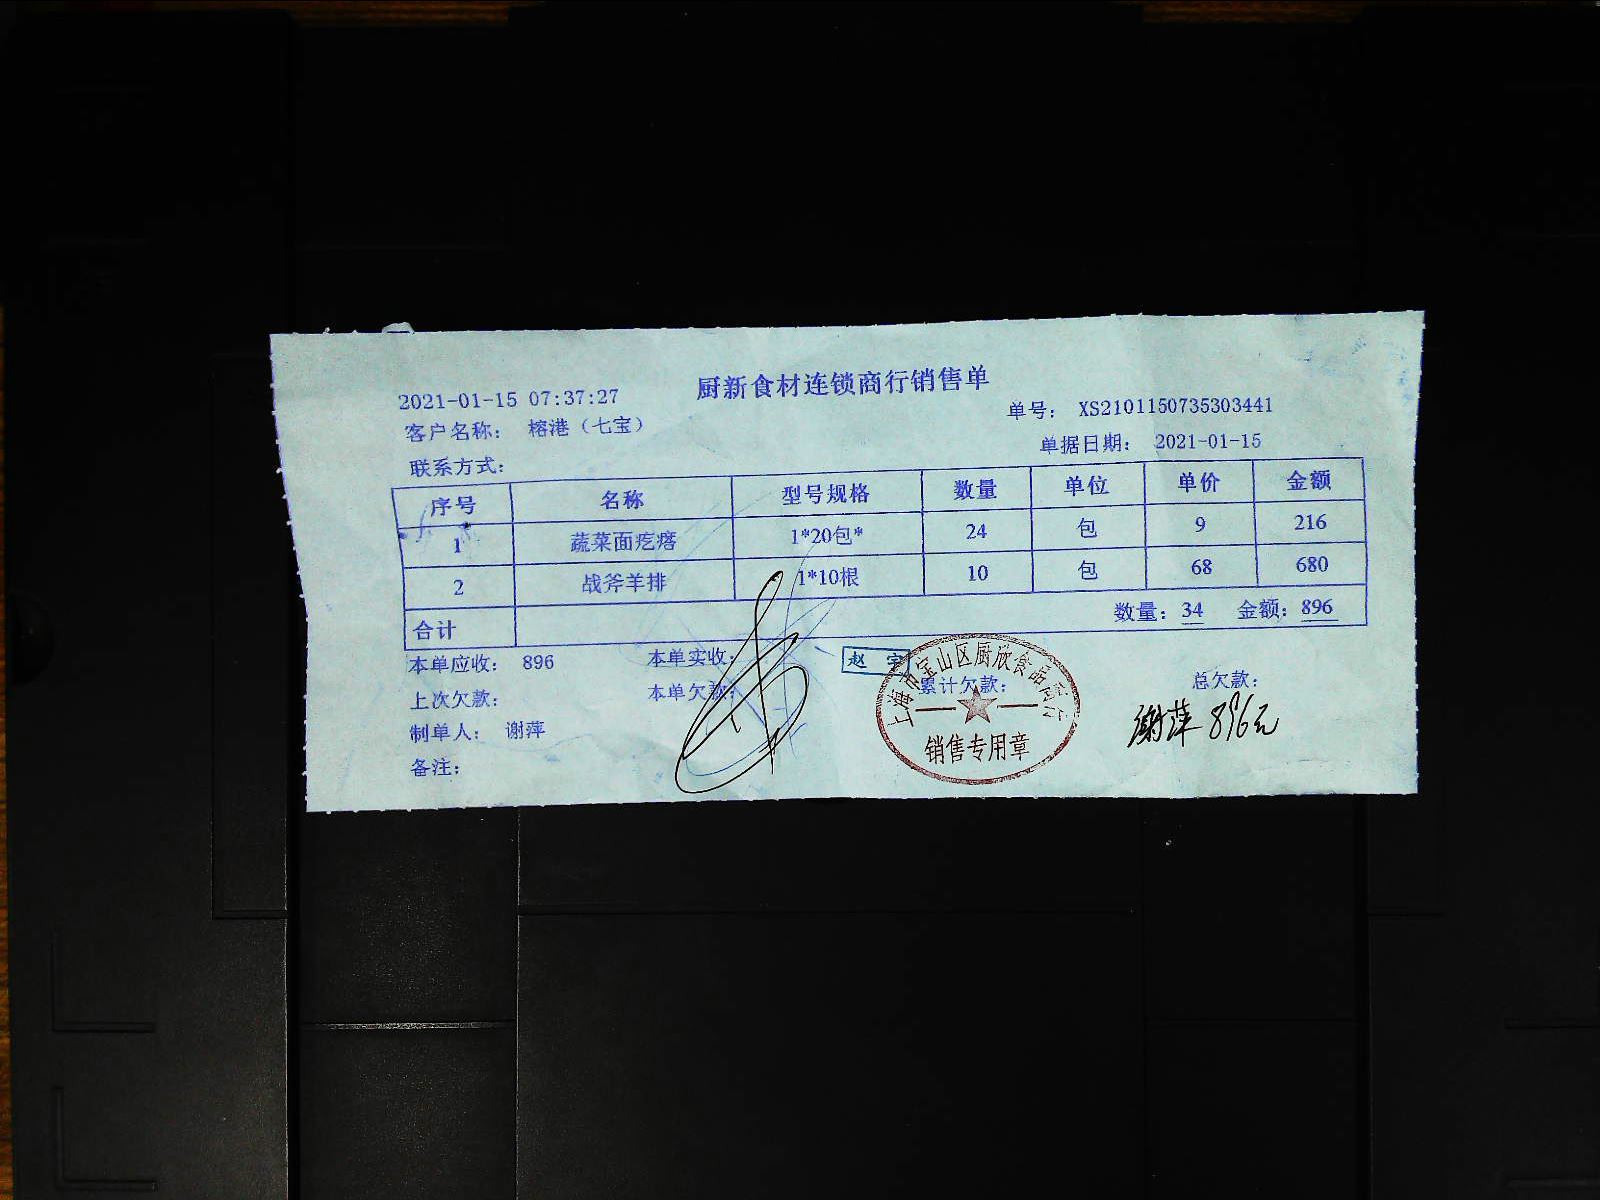 厨新食材连锁商行销售单
2021-01-15 07:37:27
单号: XS2101150735303441
客户名称: 榕港（七宝）
单据日期: 2021-01-15
联系方式:
序号 名称 型号规格 数量 单位 单价 金额
1 蔬菜面疙瘩 1*20包* 24 包 9 216
2 战斧羊排 1*10根 10 包 68 680
合计 数量: 34 金额: 896
本单应收: 896 本单实收: 赵 宇
上次欠款: 本单欠款: 累计欠款: 总欠款:
制单人: 谢萍
备注:
上海市宝山区厨欣食品商行
销售专用章
谢萍 896元